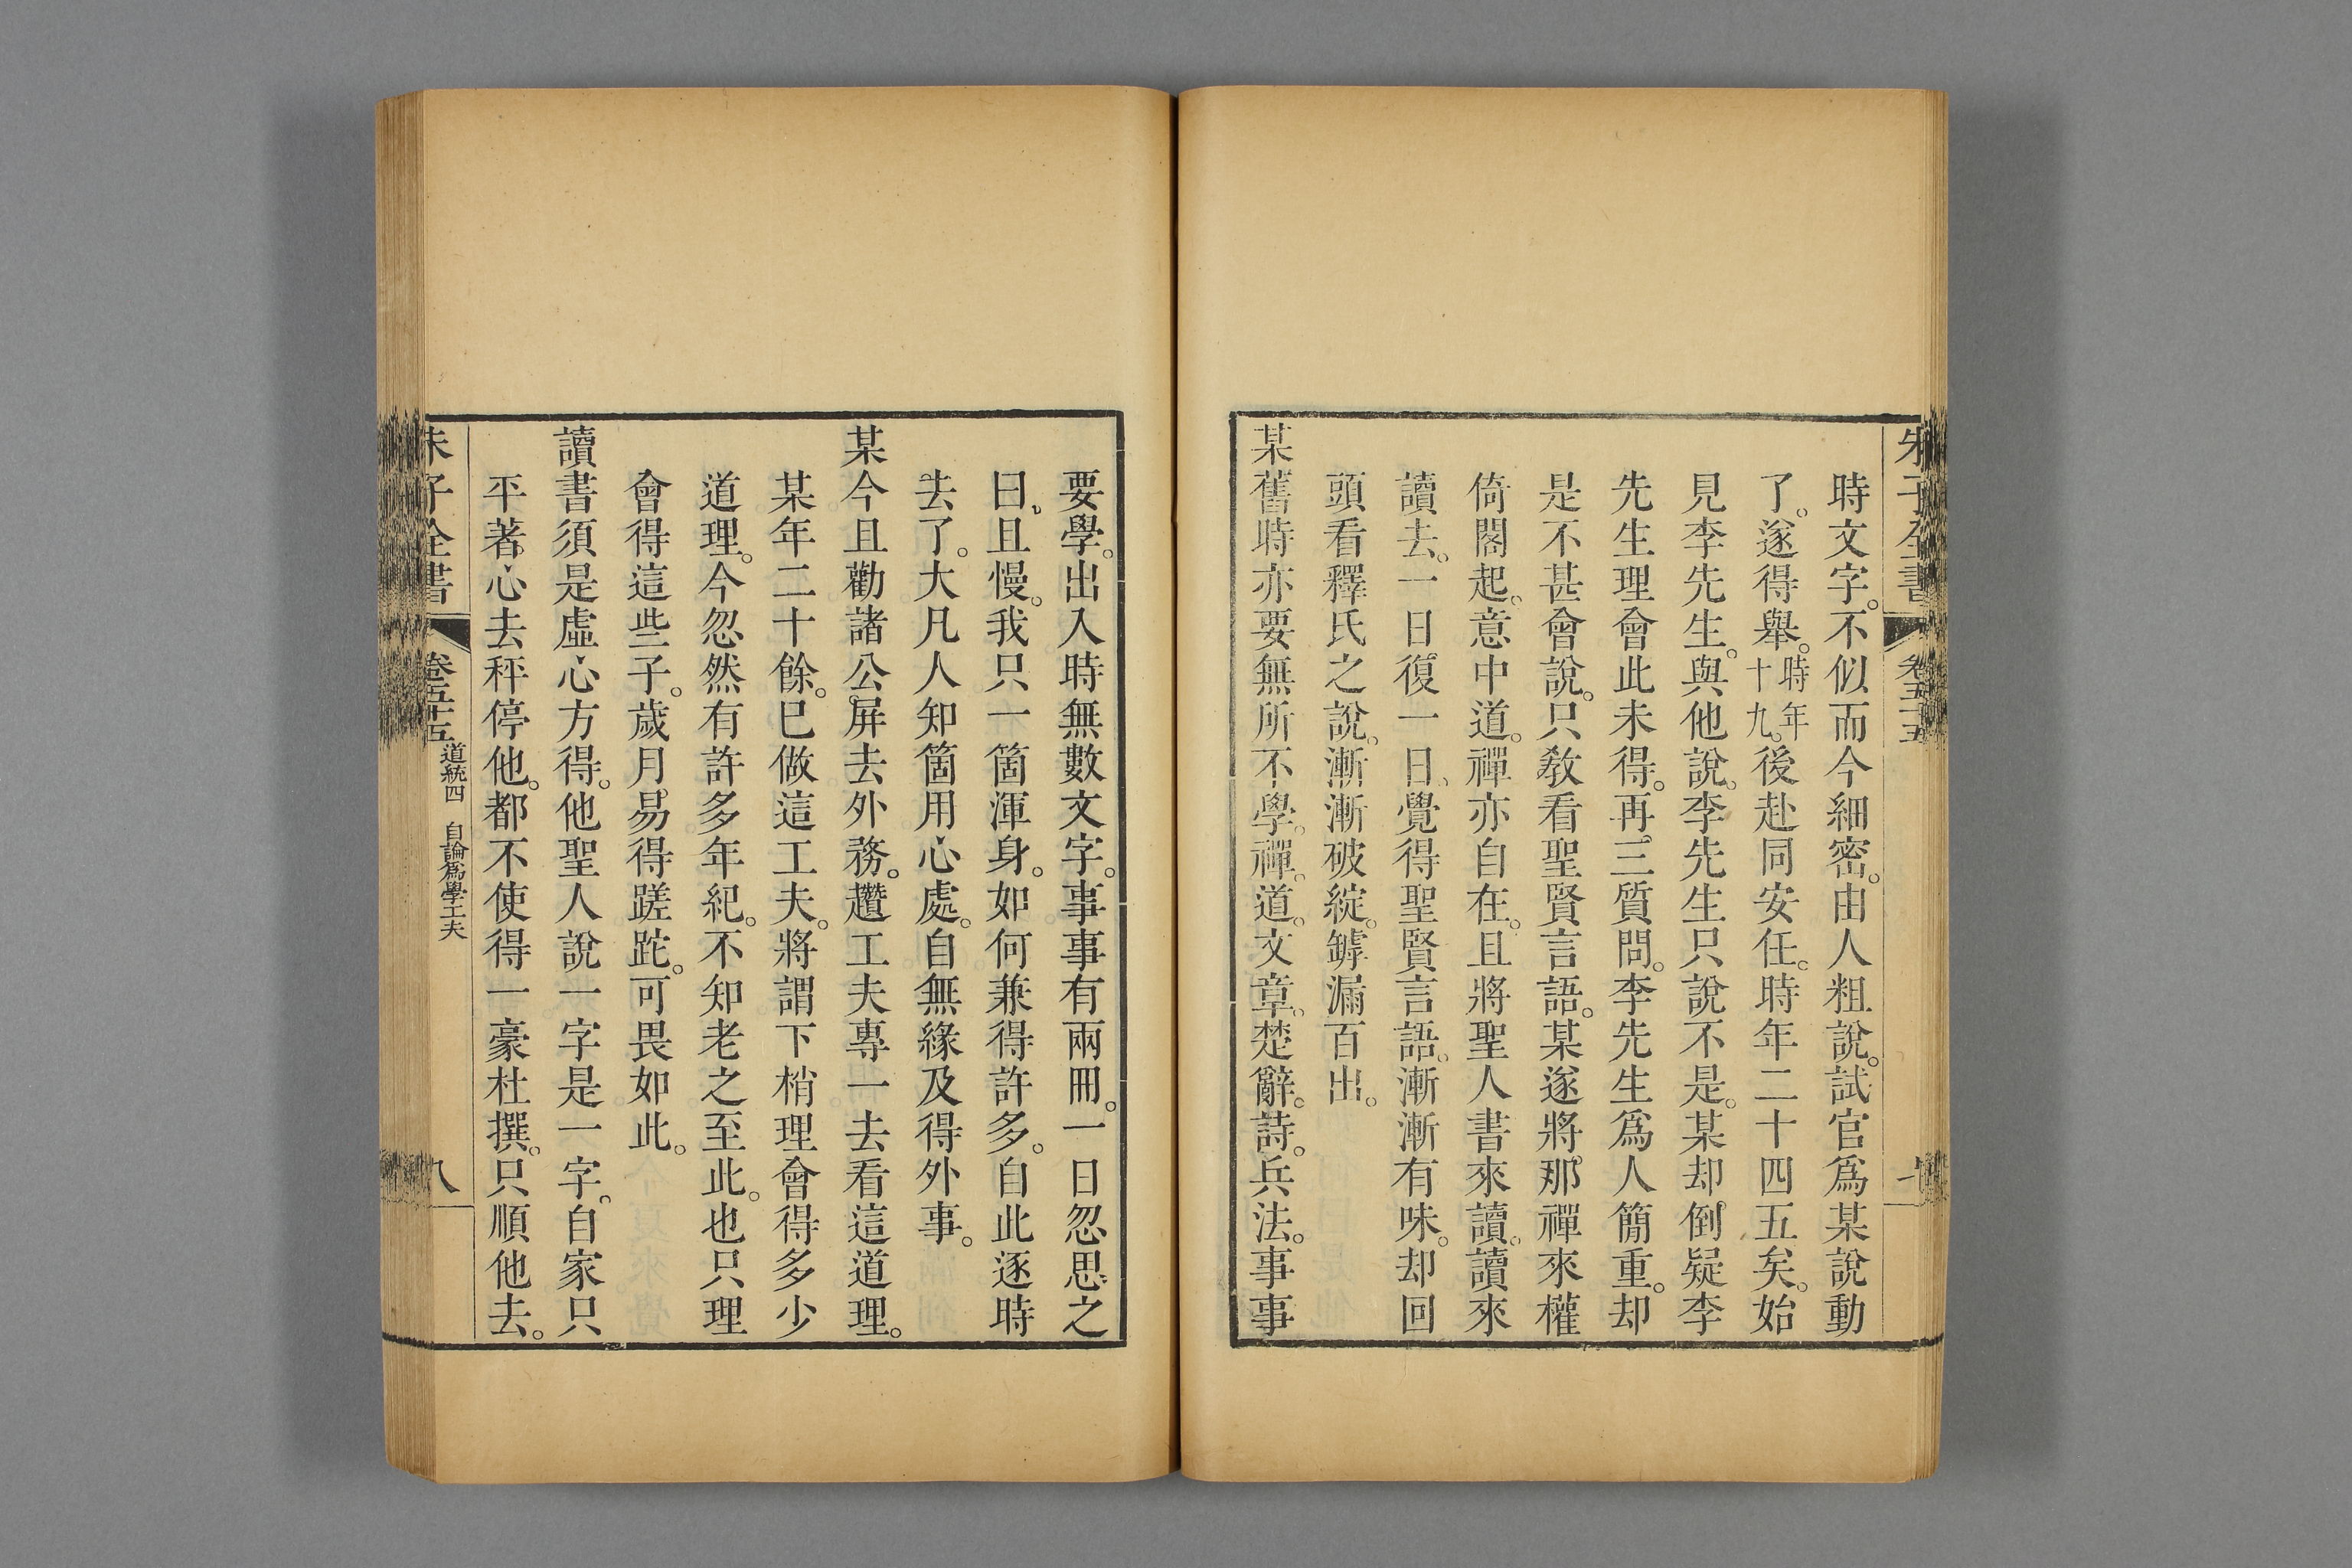 朱子全書 卷五十五
時文字。不似而今細密。由人粗說。試官爲某說動
了。遂得舉。時年十九。後赴同安任。時年二十四五矣。始
見李先生。與他說。李先生只說不是。某却倒疑李
先生理會此未得。再三質問。李先生爲人簡重。却
是不甚會說。只敎看聖賢言語。某遂將那禪來權
倚閣起。意中道。禪亦自在。且將聖人書來讀。讀來
讀去。一日復一日。覺得聖賢言語。漸漸有味。却回
頭看釋氏之說。漸漸破綻。罅漏百出。
某舊時亦要無所不學。禪。道。文章。楚辭。詩。兵法。事事
要學。出入時無數文字。事事有兩冊。一日忽思之
曰。且慢。我只一箇渾身。如何兼得許多。自此逐時
去了。大凡人知箇用心處。自無緣及得外事。
某今且勸諸公屏去外務。趲工夫專一去看這道理。
某年二十餘。巳做這工夫。將謂下梢理會得多少
道理。今忽然有許多年紀。不知老之至此。也只理
會得這些子。歲月易得蹉跎。可畏如此。
讀書須是虛心方得。他聖人說一字是一字。自家只
平著心去秤停他。都不使得一豪杜撰。只順他去。
朱子全書 卷五十五 道統四 自論爲學工夫 八